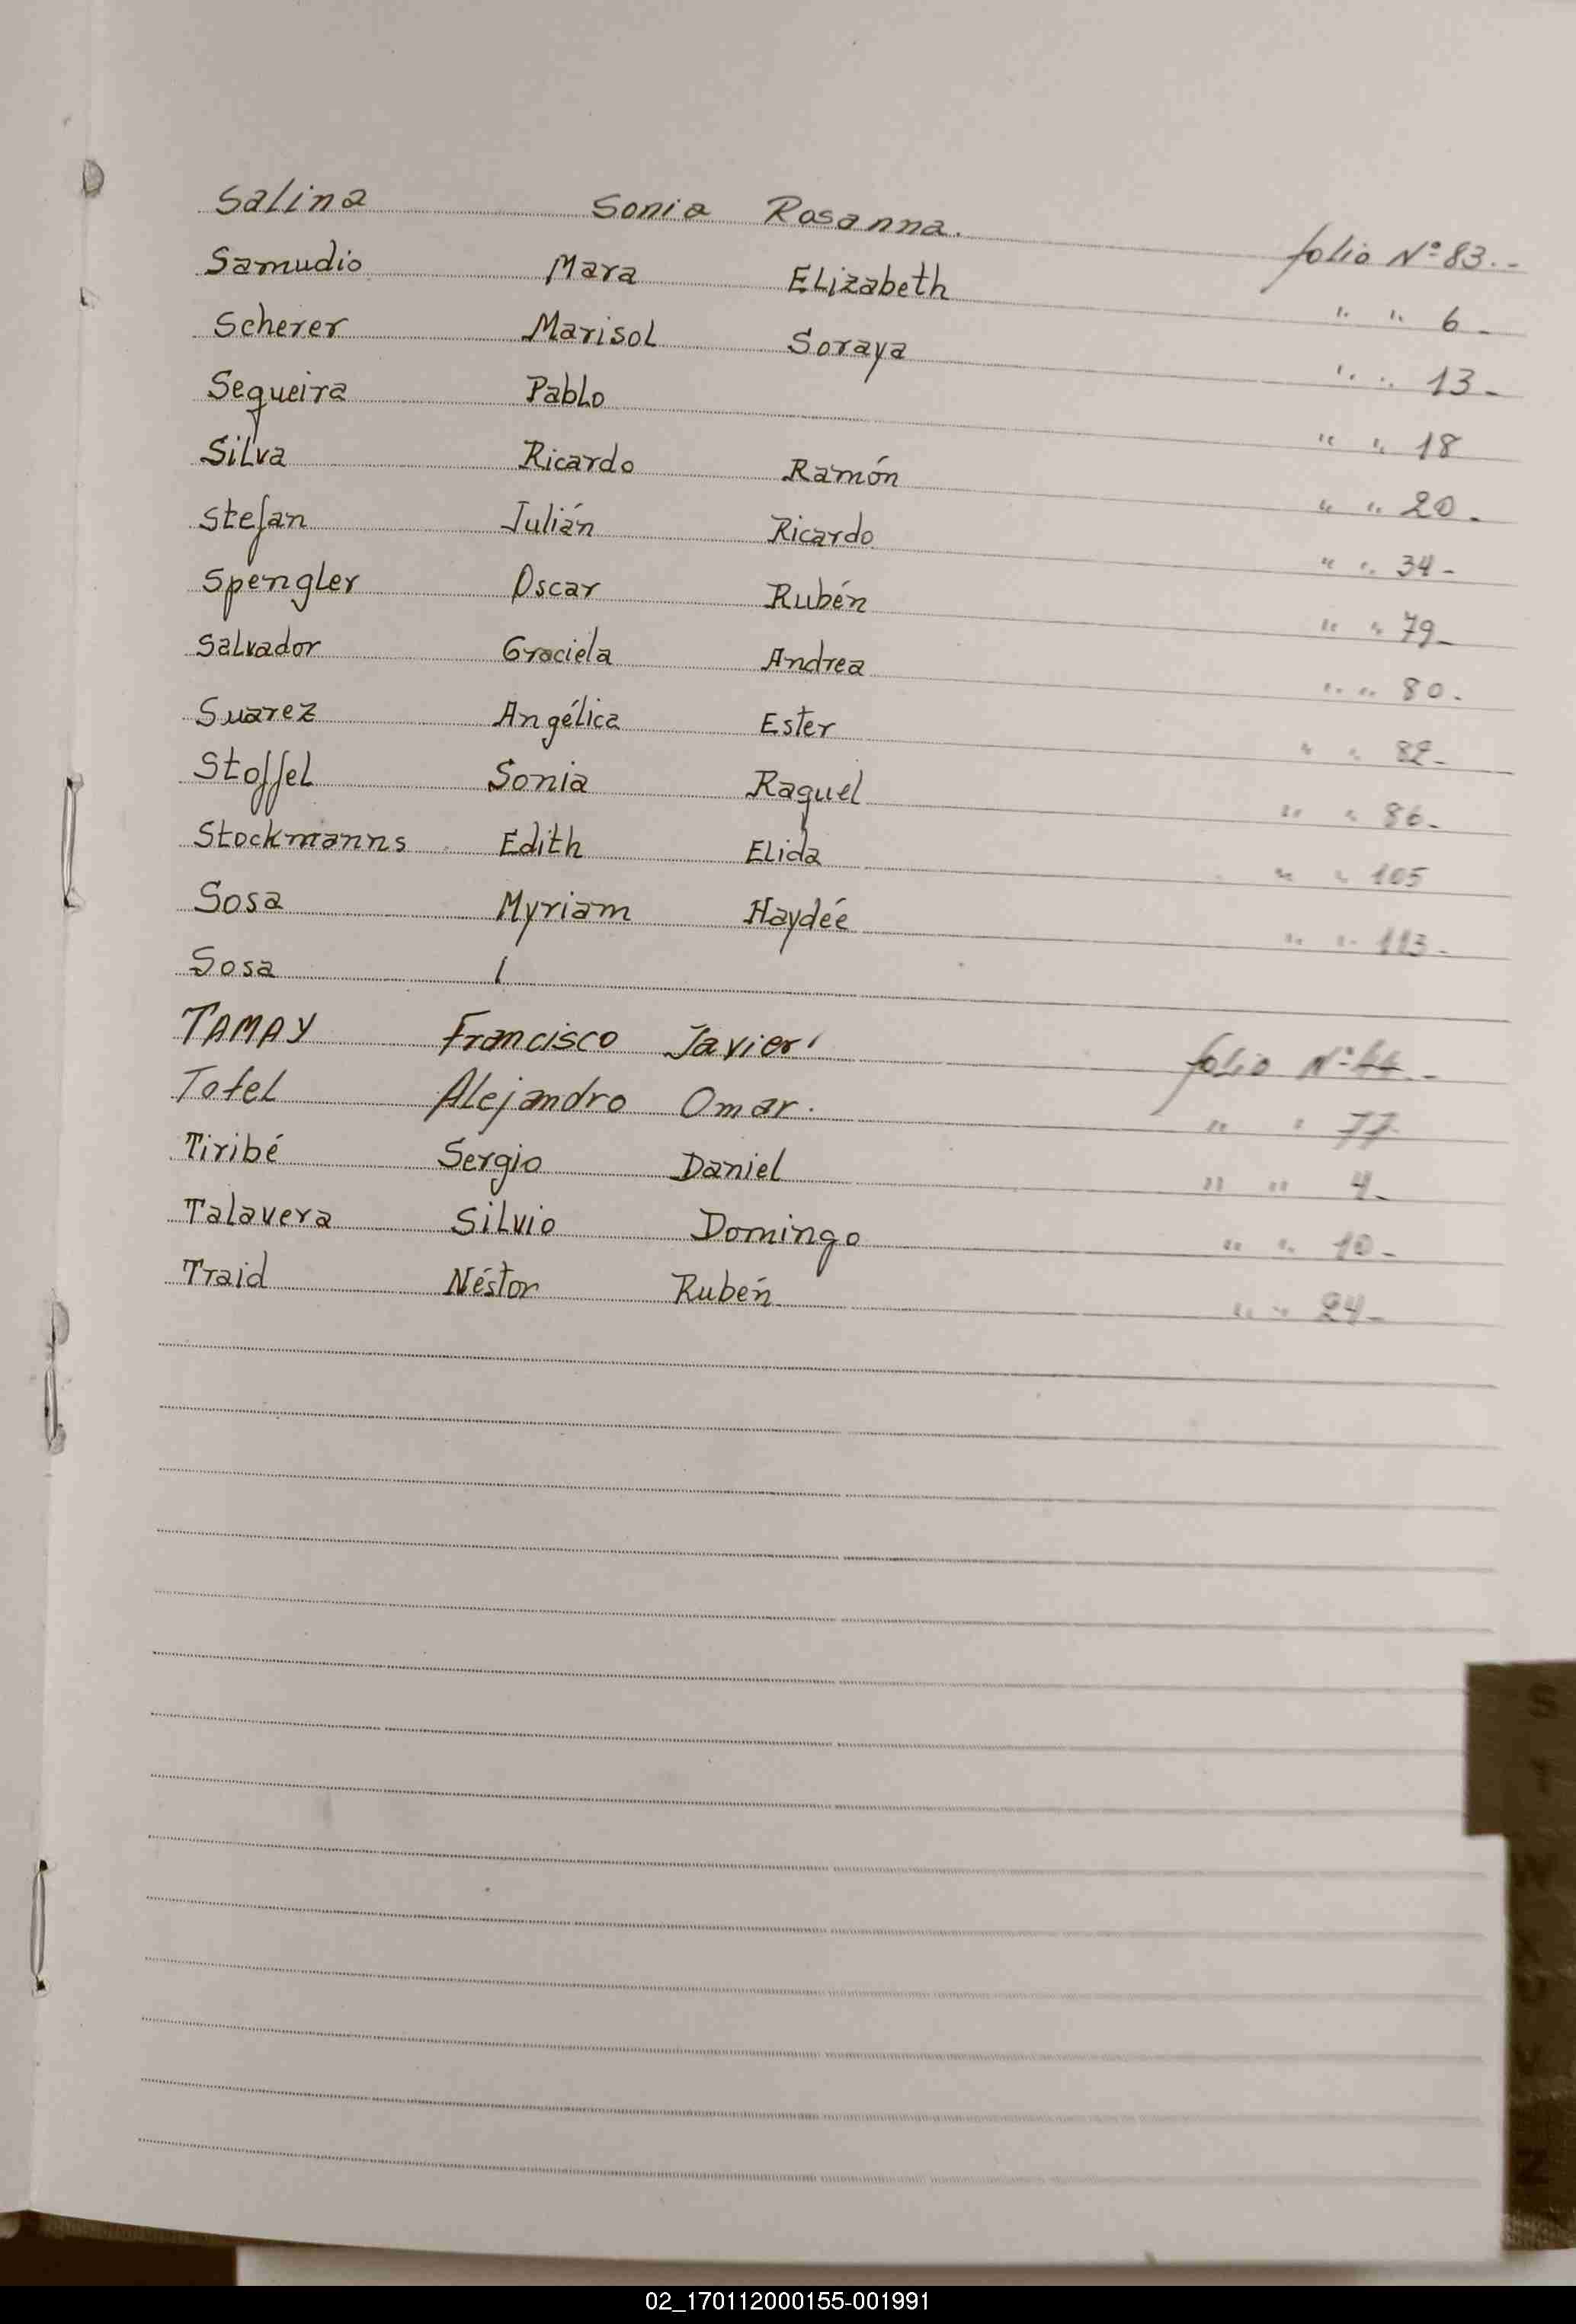 Salina Sonia Rosanna. folio Nº 83.-
Samudio Mara Elizabeth " " 6-
Scherer Marisol Soraya " " 13-
Sequeira Pablo " " 18
Silva Ricardo Ramón " " 20-
Stefan Julián Ricardo " " 34-
Spengler Oscar Rubén " " 79-
Salvador Graciela Andrea " " 80.
Suarez Angélica Ester " " 82-
Stoffel Sonia Raquel " " 86-
Stockmanns Edith Elida " " 105
Sosa Myriam Haydée " " 113-
Sosa
TAMAY Francisco Javier folio Nº 44.-
Alejandro Omar. " " 77
Tiribé Sergio Daniel " " 4-
Talavera Silvio Domingo " " 10-
Traid Néstor Rubén " " 24-
S
T
W
X
U
V
Z
02_170112000155-001991